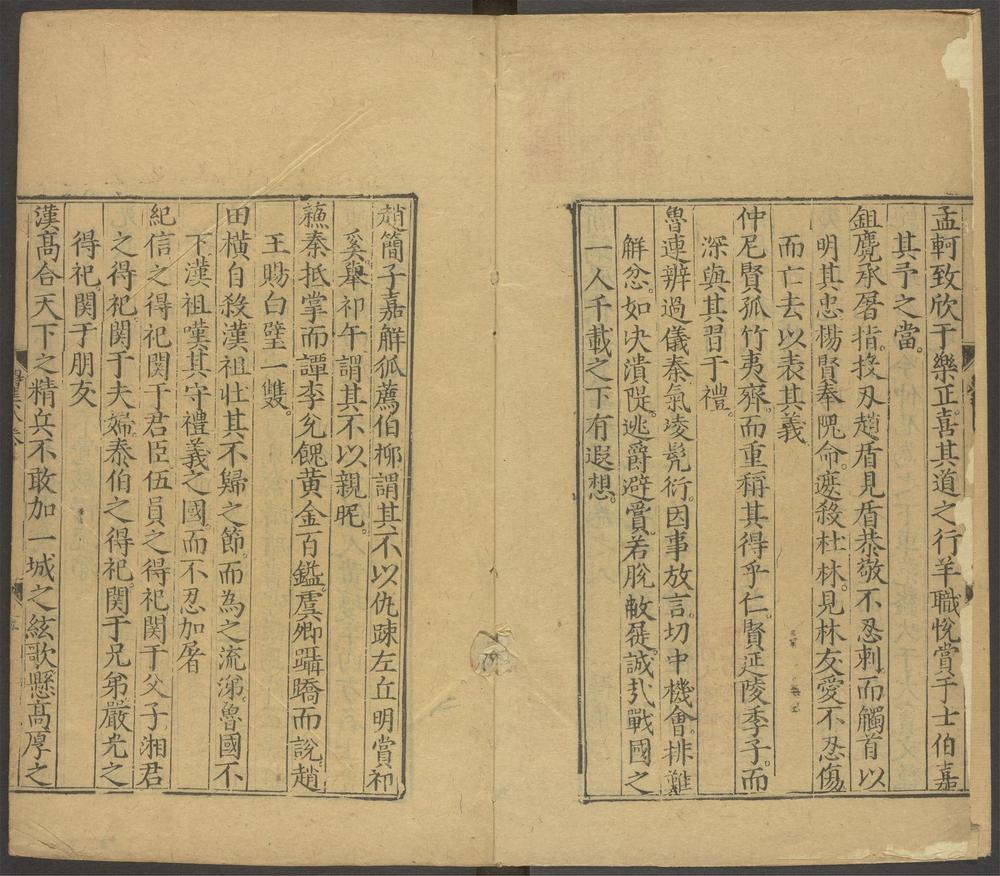 孟軻致欣于樂正。喜其道之行羊職悅賞于士伯嘉
其予之當。
鉏麑承屠指。挍刃趙盾見盾恭敬不忍刺。而觸首以
明其忠楊賢奉隗命。遮殺杜林。見林友愛不忍傷
而亡去以表其義
仲尼賢孤竹夷齊。而重稱其得乎仁。賢延陵季子。而
深與其習于禮。
魯連辨過儀秦氣凌髡衍。因事放言。切中機會。排難
解忿。如决潰隄。逃爵避賞。若脫敝屣。誠戰國之
一人千載之下有遐想。
趙簡子嘉解狐薦伯柳謂其不以仇踈左丘明賞祁
奚舉祁午謂其不以親昵。
蘓秦抵掌而譚李兊餽黃金百鎰。虞卿躡蹻而說。趙
王賜白璧一雙。
田橫自殺漢祖壮其不歸之節。而為之流涕。魯國不
下漢祖嘆其守禮義之國。而不忍加屠
紀信之得祀関于君臣伍員之得祀関于父子湘君
之得祀関于夫婦。泰伯之得祀。関于兄弟嚴光之
得祀。関于朋友
漢高合天下之精兵不敢加一城之絃歌懸高厚之